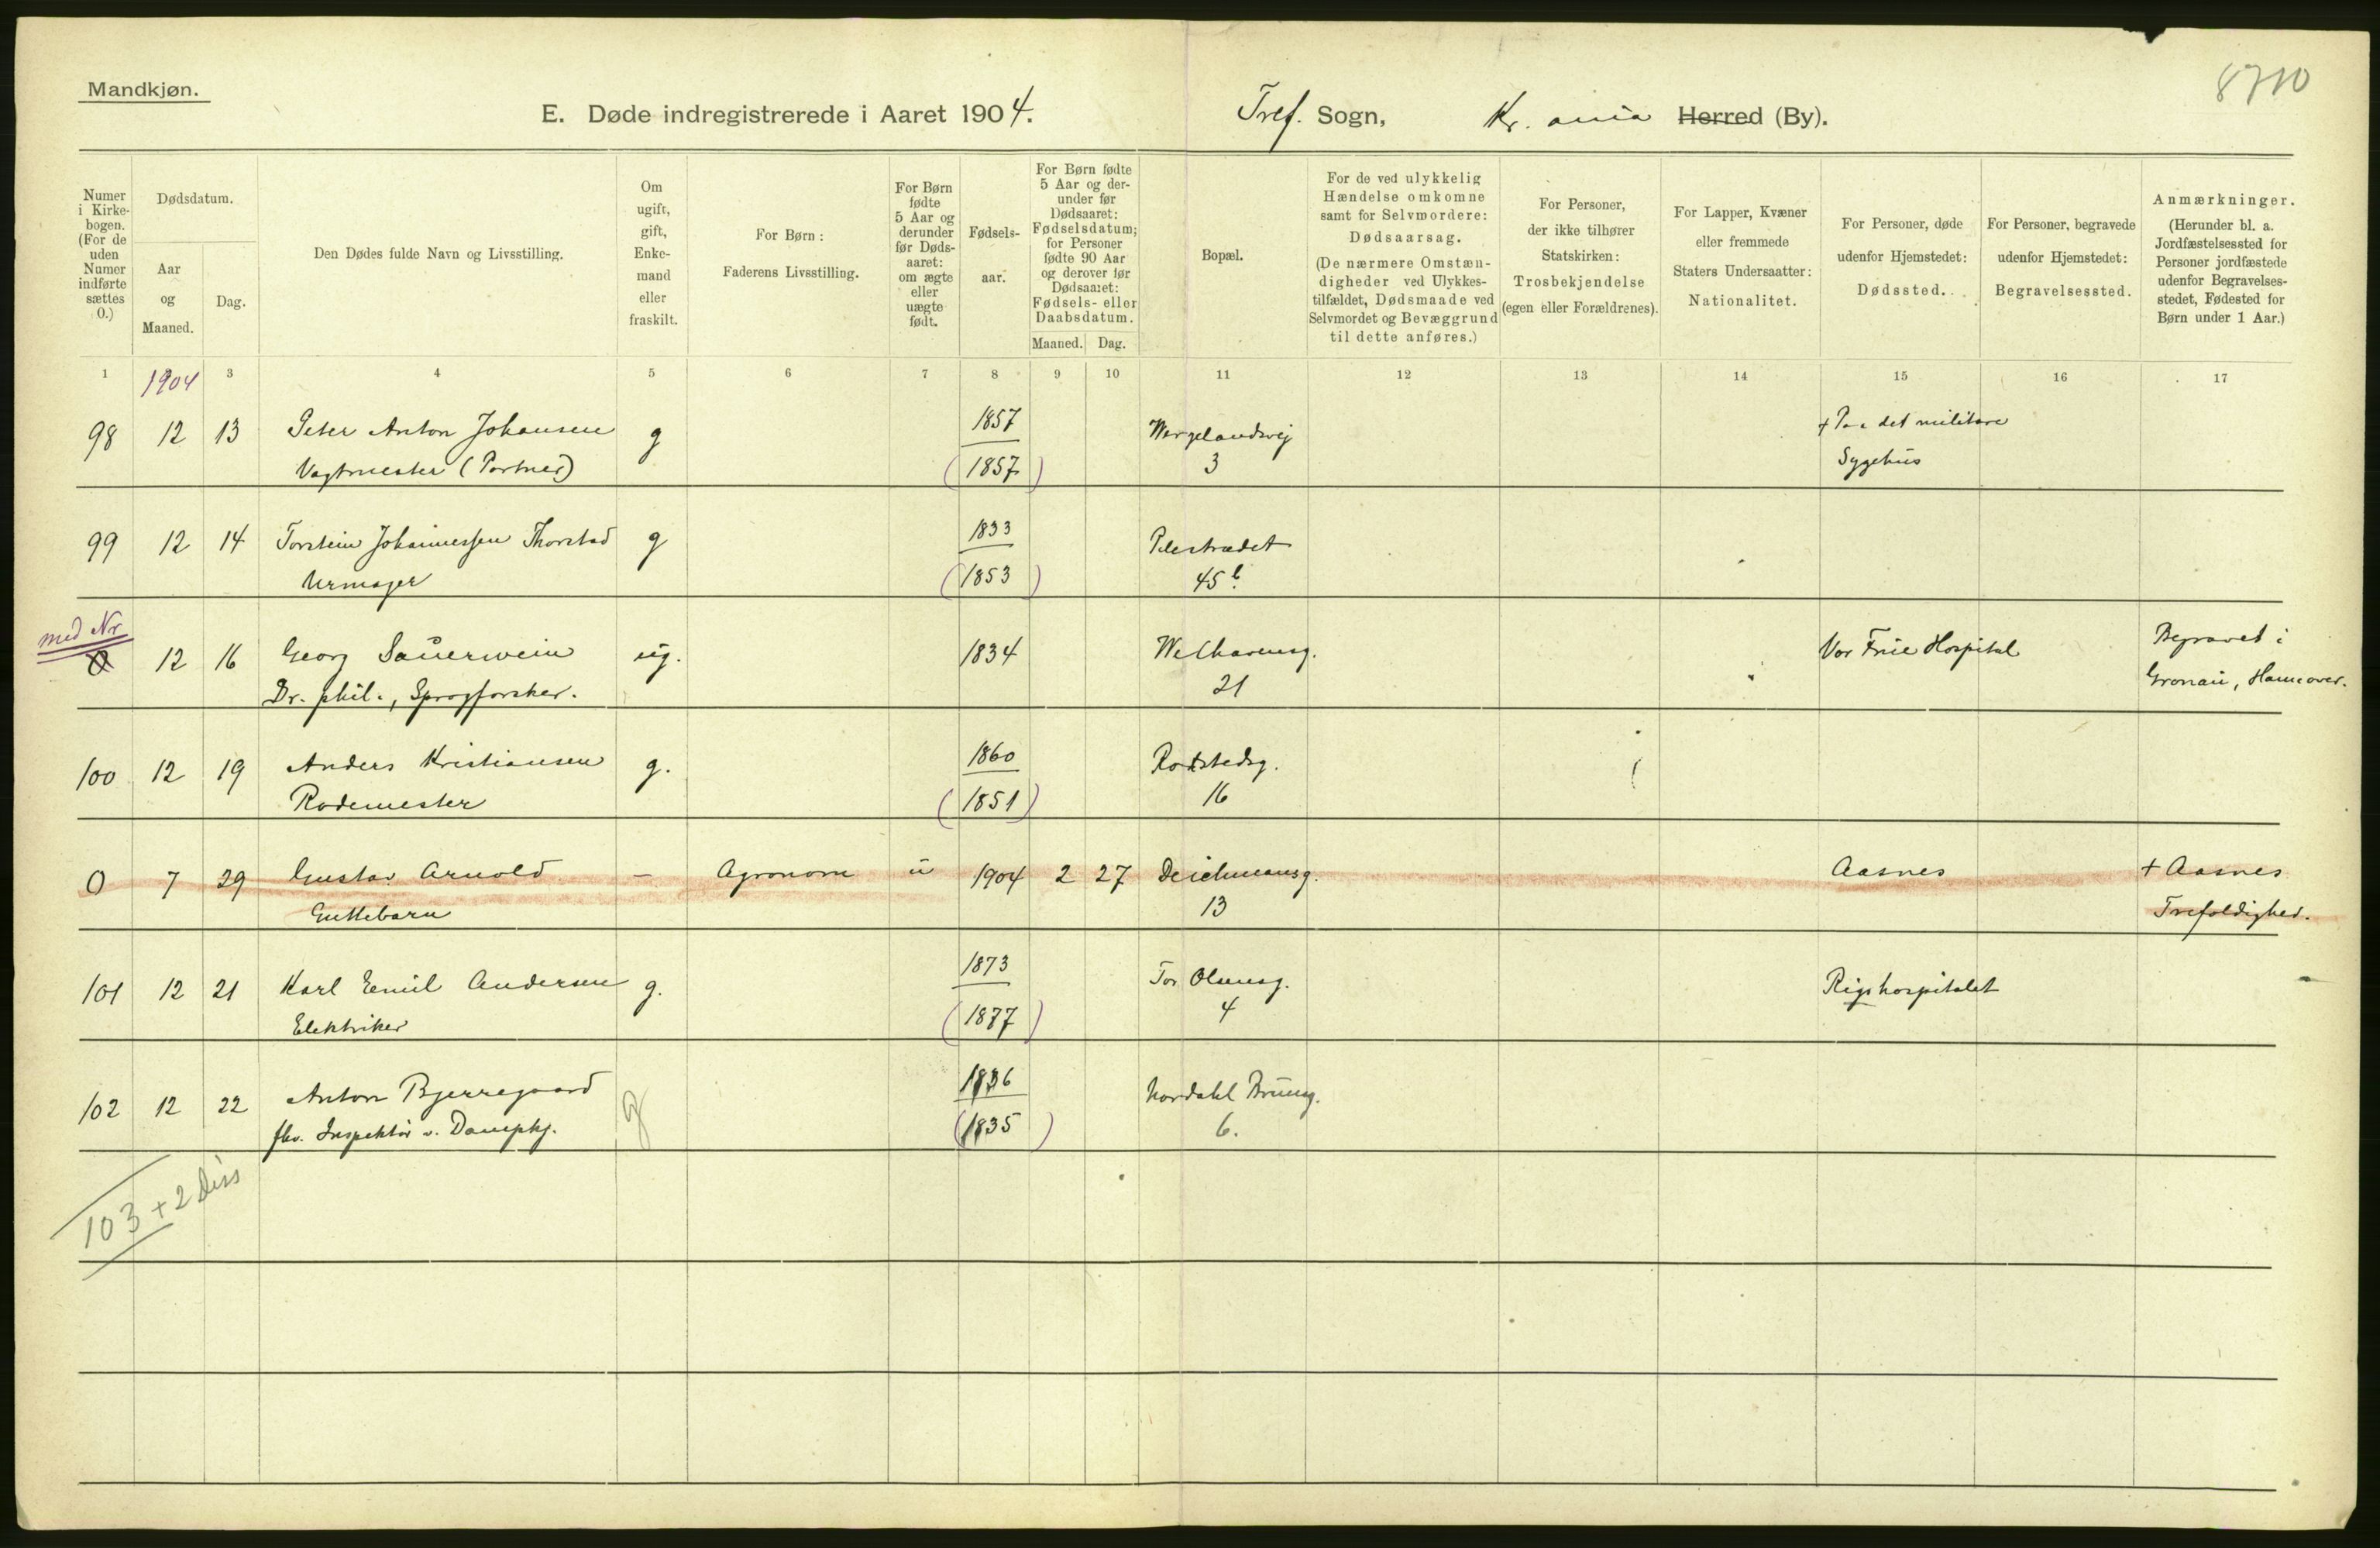 Mandkjøn.
8710
E. Døde indregistrerede i Aaret 1904. Tref. Sogn, Kr. ania Herred (By).
Numer i Kirkebogen. (For de uden Numer indførte sættes 0.)
Dødsdatum.
Aar og Maaned.
Dag.
Den Dødes fulde Navn og Livsstilling.
Om ugift, gift, Enkemand eller fraskilt.
For Børn: Faderens Livsstilling.
For Børn fødte 5 Aar og derunder før Dødsaaret: om ægte eller uægte født.
Fødselsaar.
For Børn fødte 5 Aar og derunder før Dødsaaret: Fødselsdatum; for Personer fødte 90 Aar og derover før Dødsaaret: Fødsels- eller Daabsdatum.
Maaned. Dag.
Bopæl.
For de ved ulykkelig Hændelse omkomne samt for Selvmordere: Dødsaarsag. (De nærmere Omstændigheder ved Ulykkestilfældet, Dødsmaade ved Selvmordet og Bevæggrund til dette anføres.)
For Personer, der ikke tilhører Statskirken: Trosbekjendelse (egen eller Forældrenes).
For Lapper, Kvæner eller fremmede Staters Undersaatter: Nationalitet.
For Personer, døde udenfor Hjemstedet: Dødssted.
For Personer, begravede udenfor Hjemstedet: Begravelsessted.
Anmærkninger. (Herunder bl. a. Jordfæstelsessted for Personer jordfæstede udenfor Begravelsesstedet, Fødested for Børn under 1 Aar.)
1 1904 3 4 5 6 7 8 9 10 11 12 13 14 15 16 17
98 12 13 Peter Anton Johansen g 1857 Wergelandsvej + Paa det militære
Vagtmester (Portner) (1857) 3 Sygehus
99 12 14 Torstein Johannessen Thorstad g 1833 Pilestrædet
Urmager (1853) 45 b
med Nr
0 12 16 Georg Sauerwein ug. 1834 Welhavensg. Vor Frue Hospital Begravet i
Dr. phil., Sprogforsker. 21 Gronau, Hannover.
100 12 19 Anders Kristiansen g. 1860 Rostedsg.
Rodemester (1851) 16
0 7 29 Gustav Arnold — Agronom u 1904 2 27 Deichmansg. Aasnes + Aasnes
Guttebarn 13 Trefoldighed.
101 12 21 Karl Emil Andersen g. 1873 Tor Olsensg. Rigshospitalet
Elektriker (1877) 4
102 12 22 Anton Bjerregaard g 1836 Nordahl Brunsg.
fhv. Inspektør v. Dampkj. (1835) 6.
103 + 2 Diss